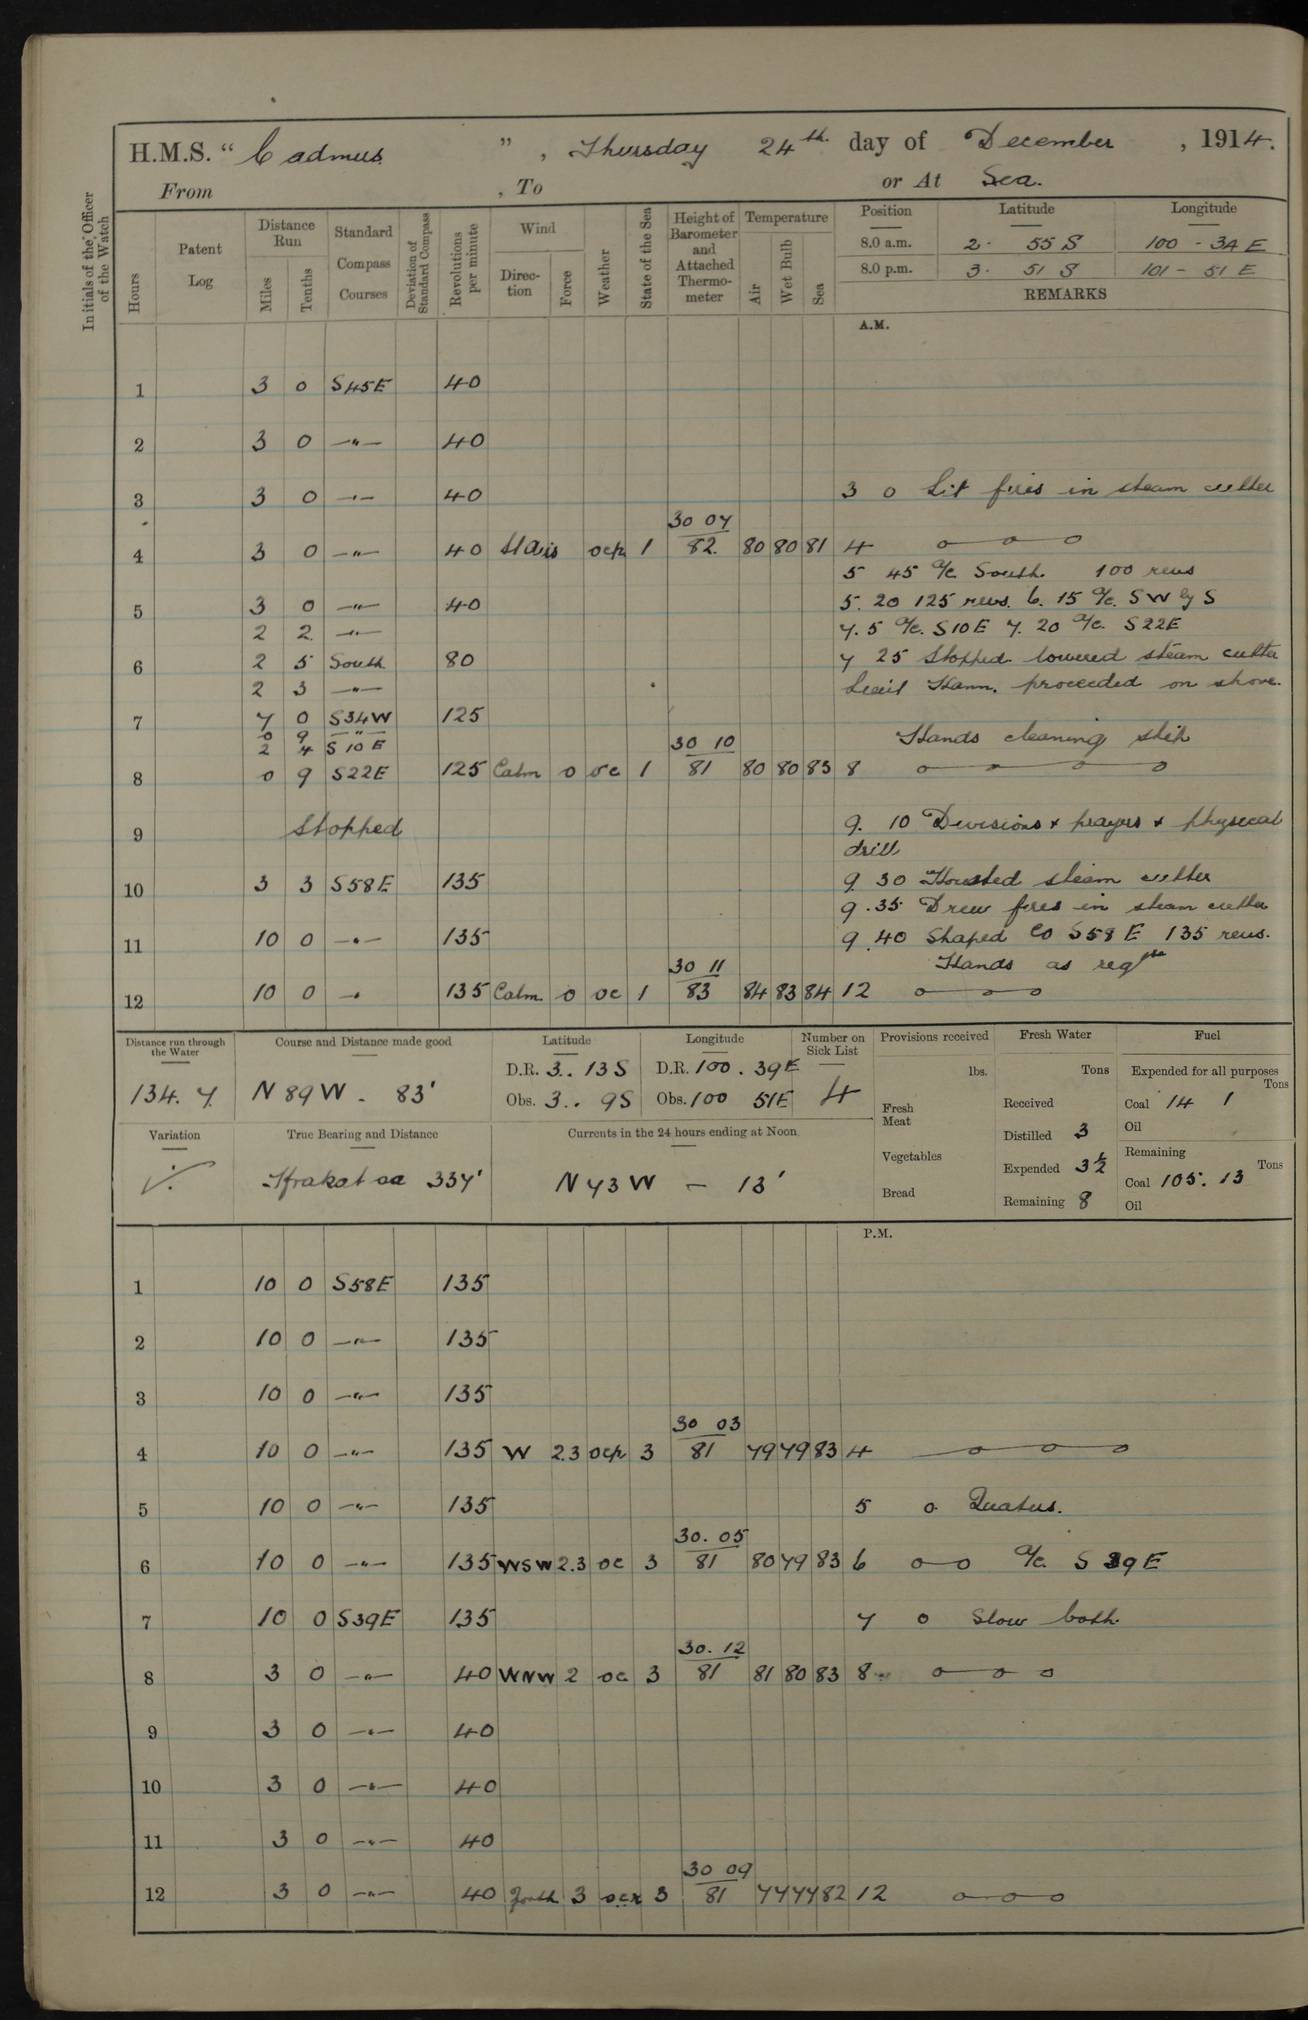 H.M.S. “ Cadmus ” , Thursday 24th day of December , 1914.
From , To or At Sea.
Initials of the Officer of the Watch
Hours
Patent Log
Distance Run
Miles
Tenths
Standard Compass Courses
Deviation of Standard Compass
Revolutions per minute
Wind
Direction
Force
Weather
State of the Sea
Height of Barometer and Attached Thermometer
Temperature
Air
Wet Bulb
Sea
Position Latitude Longitude
8.0 a.m. 2. 55 S 100 - 34 E
8.0 p.m. 3. 51 S 101 - 51 E
REMARKS
A.M.
1 3 0 S45E 40
2 3 0 —"— 40
3 3 0 —"— 40 3 0 Lit fires in steam cutter
30 04
4 3 0 —"— 40 ocp 1 82 80 80 81 4
5 45 a/c South. 100 revs
5 3 0 —"— 40 5. 20 125 revs. 6. 15 a/c. SW by S
2 2 —"— 7. 5 a/c. S10E 7. 20 a/c. S22E
6 2 5 South 80 7 25 Stopped lowered steam cutter
2 3 —"— Lieut proceeded on shore.
7 7 0 S34W 125
0 9 —"— Hands cleaning ship
2 4 S10E 30 10
8 0 9 S22E 125 Calm 0 oc 1 81 80 80 83 8
9 Stopped 9. 10 Divisions & prayers & physical
drill
10 3 3 S58E 135 9 30 Hoisted steam cutter
9.35 Drew fires in steam cutter
11 10 0 —"— 135 9.40 Shaped Co S58E 135 revs.
30 11 Hands as reqte
12 10 0 —"— 135 Calm 0 oc 1 83 84 83 84 12
Distance run through the Water
134. 7
Course and Distance made good
N 89 W - 83'
Latitude
D.R. 3.. 13 S
Obs. 3.. 9 S
Longitude
D.R. 100 . 39 E
Obs. 100 51 E
Number on Sick List
4
Provisions received
lbs.
Fresh Meat
Vegetables
Bread
Fresh Water
Tons
Received
Distilled 3
Expended 3½
Remaining 8
Fuel
Expended for all purposes
Tons
Coal 14 1
Oil
Remaining
Tons
Coal 105. 13
Oil
Variation
True Bearing and Distance
Krakatoa 337'
Currents in the 24 hours ending at Noon.
N 73 W — 13'
P.M.
1 10 0 S58E 135
2 10 0 —"— 135
3 10 0 —"— 135
30 03
4 10 0 —"— 135 W 2.3 ocp 3 81 79 79 83 4
5 10 0 —"— 135 5 0 Quarters.
30. 05
6 10 0 —"— 135 WSW 2.3 oc 3 81 80 79 83 6 a/c. S 39 E
7 10 0 S39E 135 7 0 Slow both.
30. 12
8 3 0 —"— 40 WNW 2 oc 3 81 81 80 83 8
9 3 0 —"— 40
10 3 0 —"— 40
11 3 0 —"— 40
30 09
12 3 0 —"— 40 3 ocr 3 81 77 77 82 12